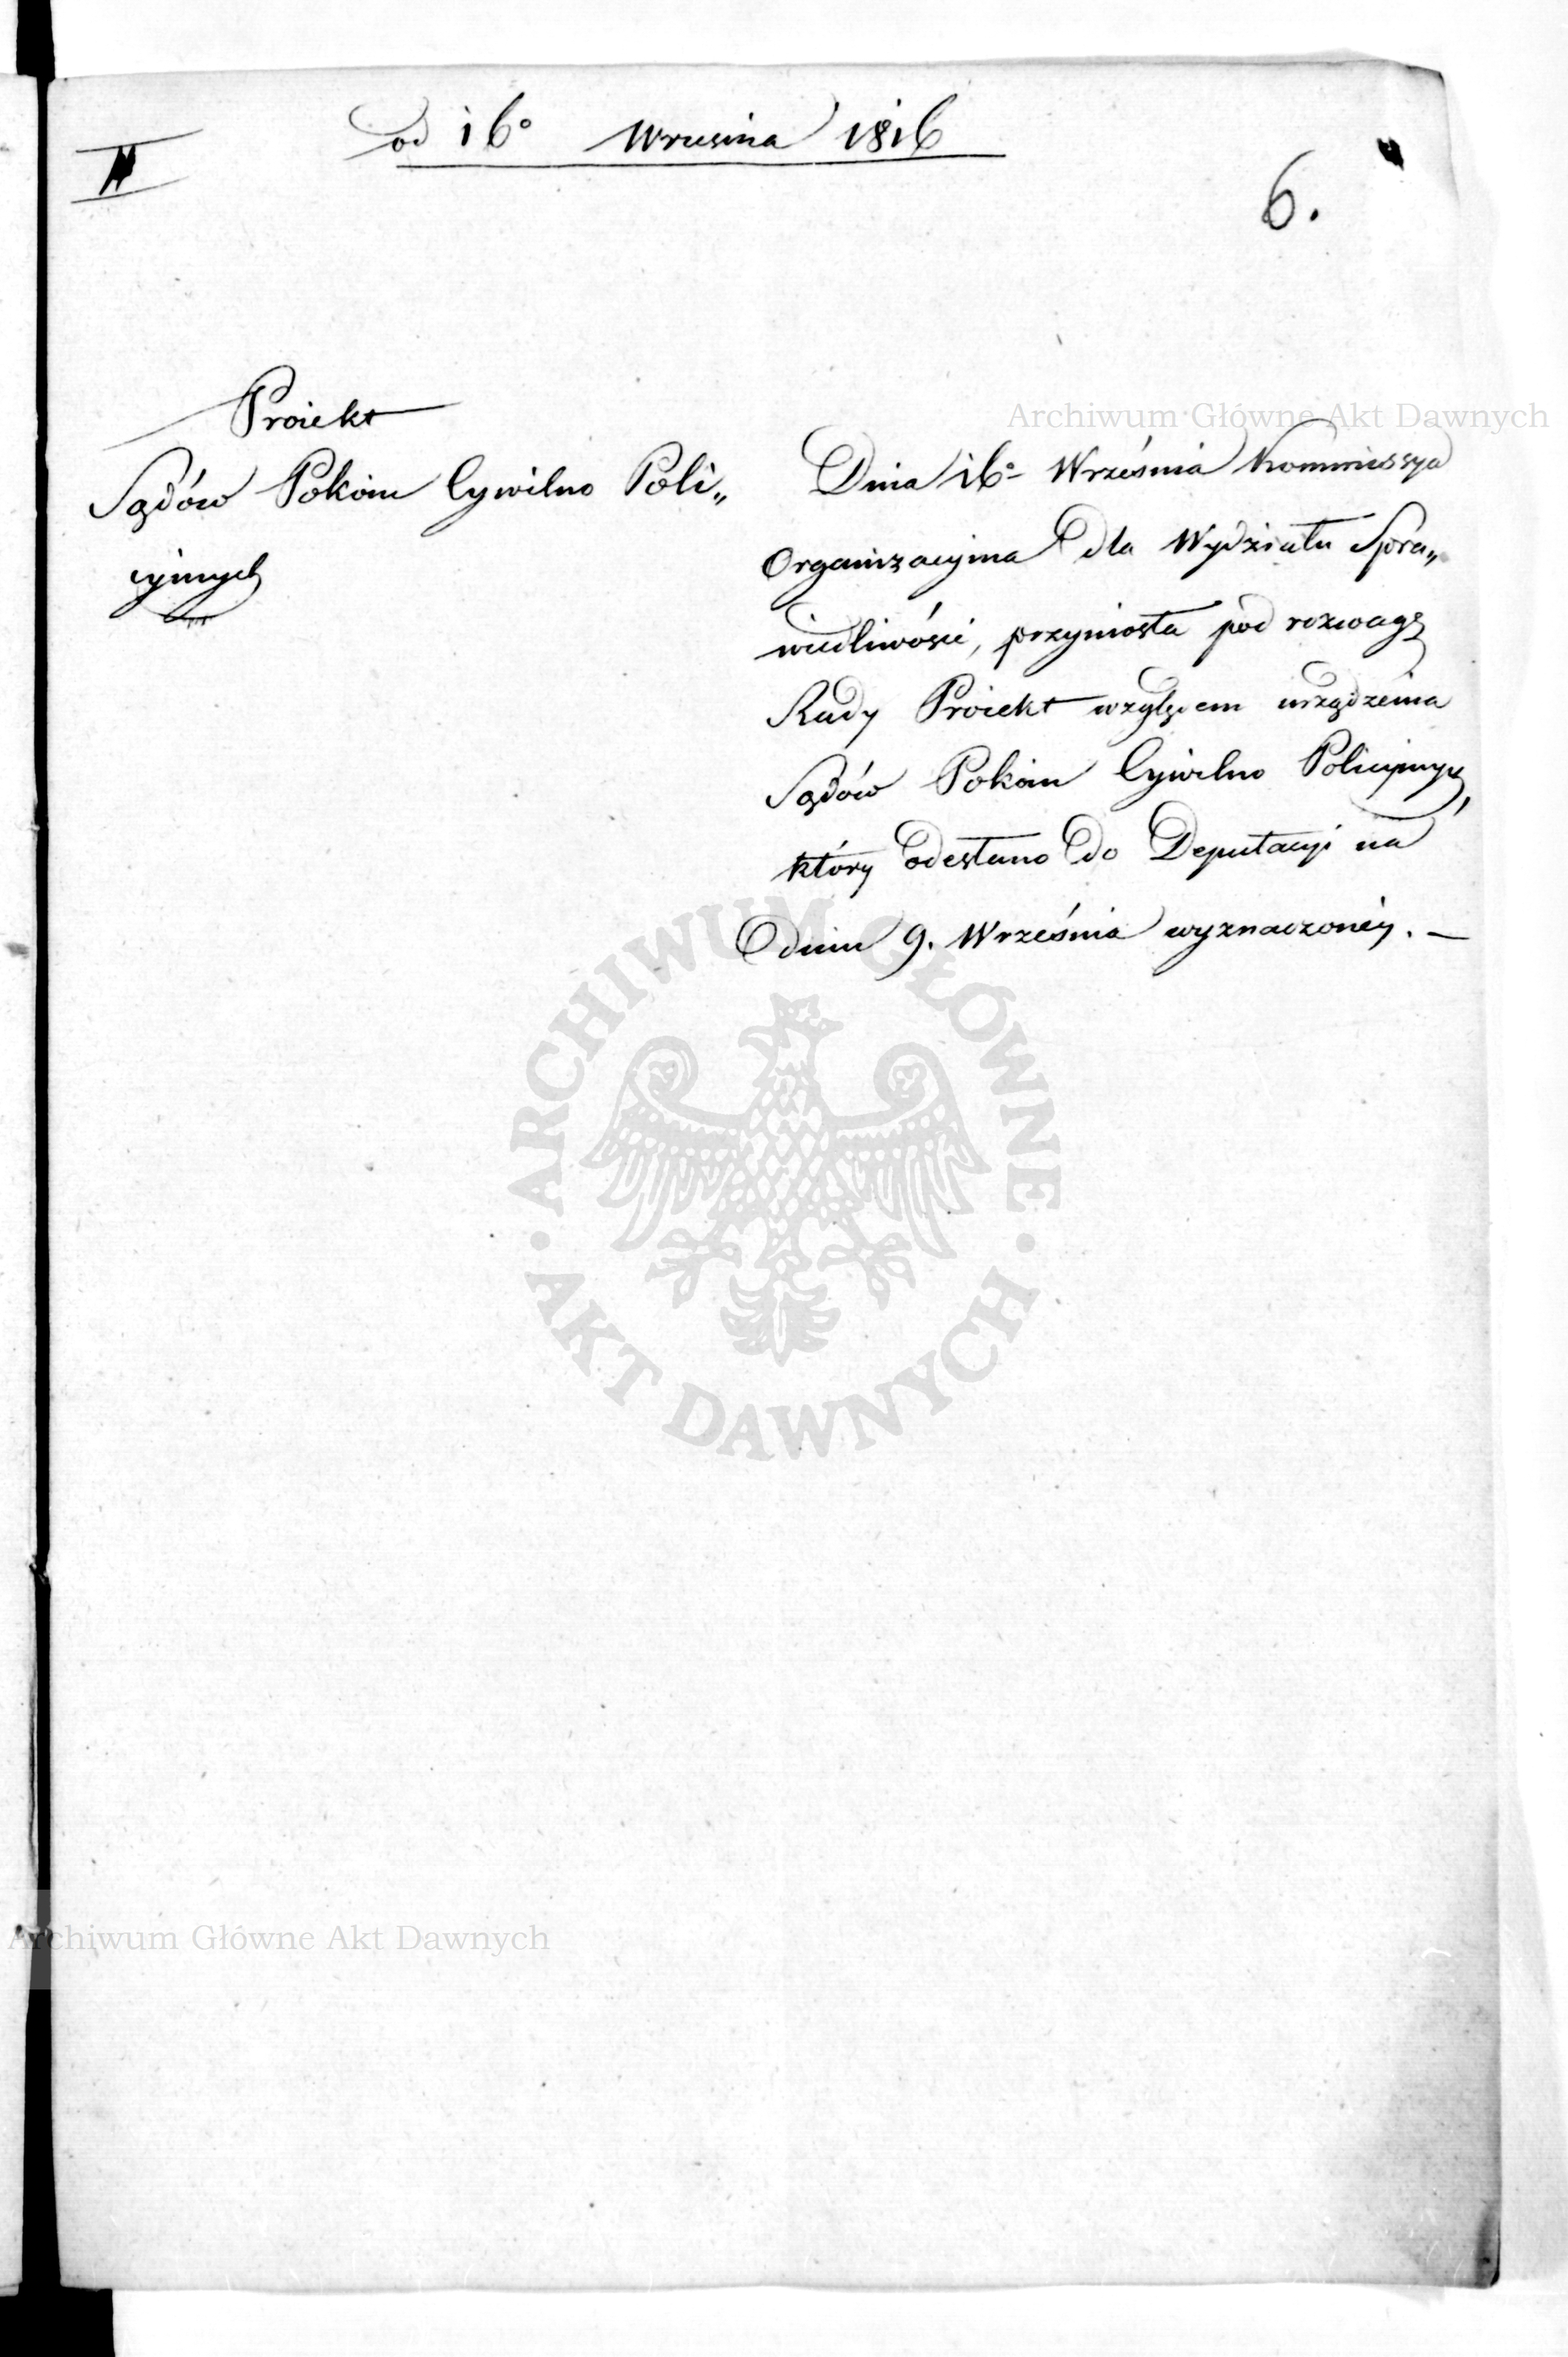 od 16° Wrzesnia 1816
II
6.
Proiekt
Sądów Pokoiu Cywilno Poli„
cyinych
Dnia 16° Września Kommissya
Organizacyina dla Wydziału Spra„
wiedliwości, przyniosła pod rozwagę
Rady Proiekt względem urządzenia
Sądów Pokoiu Cywilno Policyinych,
który odesłano do Deputacyi na
dniu 9. Września wyznaczoney. —
Archiwum Główne Akt Dawnych
ARCHIWUM GŁÓWNE
AKT DAWNYCH
Archiwum Główne Akt Dawnych